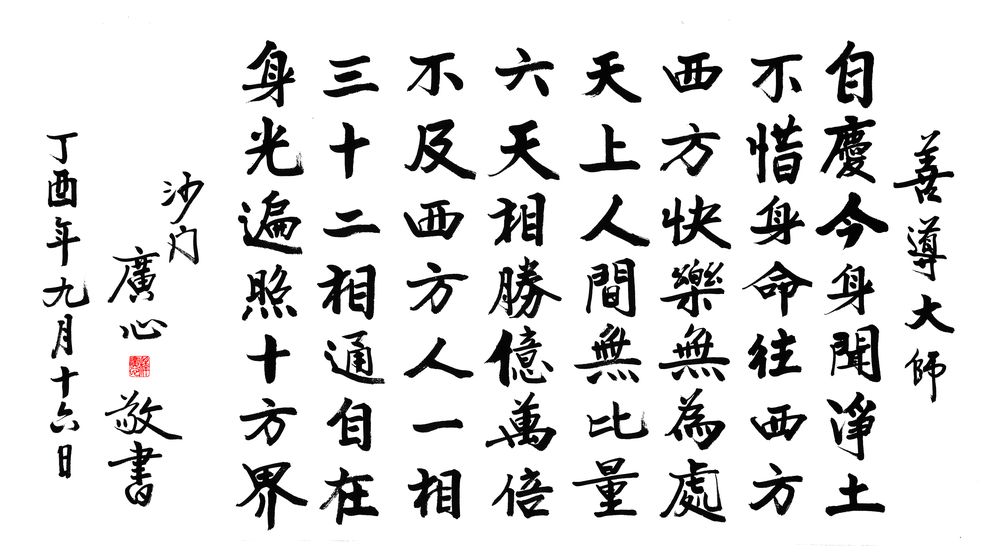 善導大師
自慶今身聞淨土
不惜身命往西方
西方快樂無為處
天上人間無比量
六天相勝億萬倍
不及西方人一相
三十二相通自在
身光遍照十方界
沙门
廣心
敬書
丁酉年九月十六日